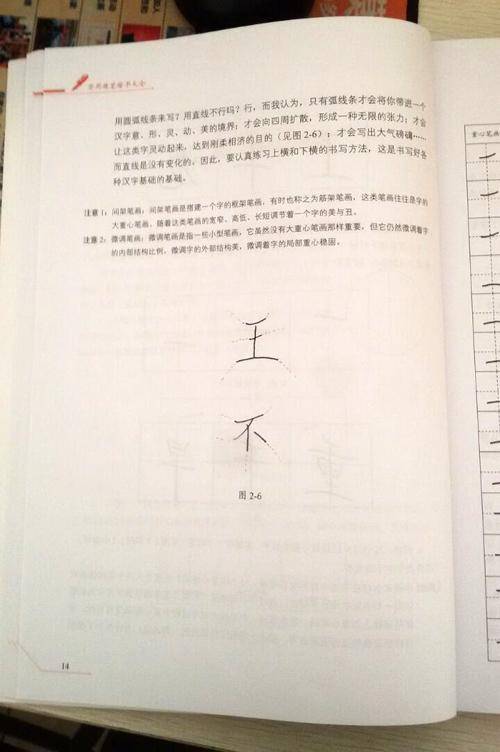 常用硬笔楷书大全
用圆弧线条来写？用直线不行吗？行，而我认为，只有弧线条才会将你带进一个
汉字意、形、灵、动、美的境界；才会向四周扩散，形成一种无限的张力；才会
让这类字灵动起来，达到刚柔相济的目的（见图2-6）；才会写出大气磅礴……
而直线是没有变化的。因此，要认真练习上横和下横的书写方法，这是书写好各
种汉字基础的基础。
注意 1：间架笔画：间架笔画是搭建一个字的框架笔画，有时也称之为筋架笔画，这类笔画往往是字的
大重心笔画。随着这类笔画的宽窄、高低、长短调节着一个字的美与丑。
注意 2：微调笔画：微调笔画是指一些小型笔画，它虽然没有大重心笔画那样重要，但它仍然微调着字
的内部结构比例。微调字的外部结构美，微调着字的局部重心稳固。
王
不
图 2-6
14
重心笔画